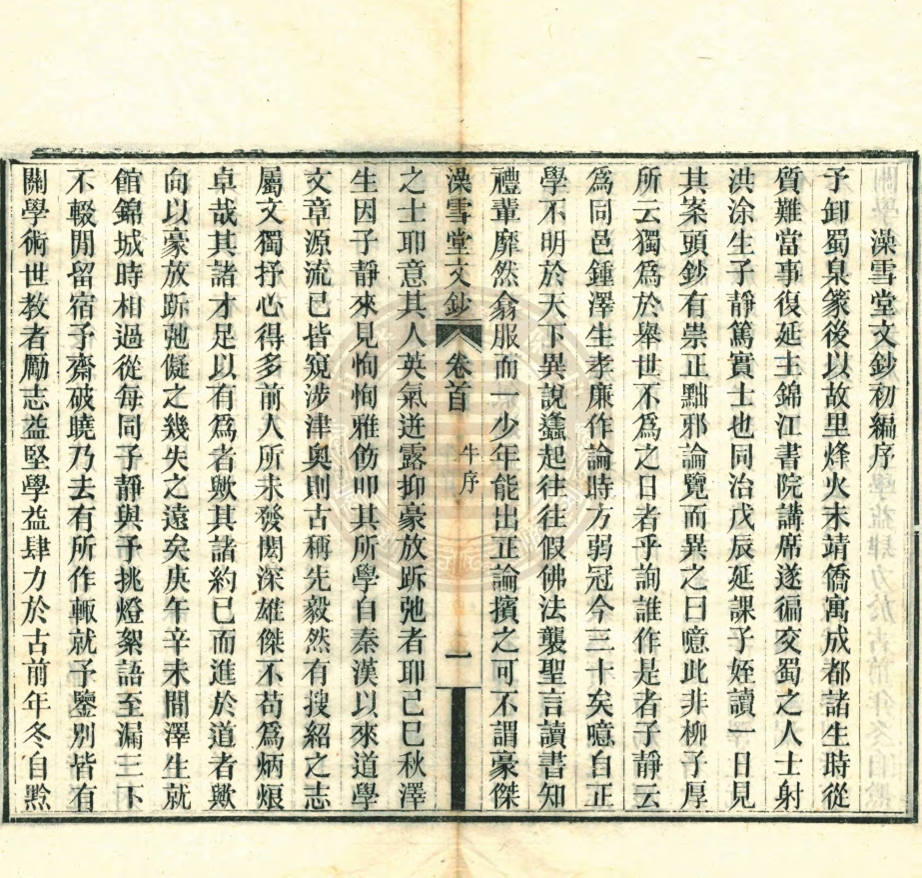 澡雪堂文鈔初編序
予卸蜀臬篆後以故里烽火未靖僑寓成都諸生時從
質難當事復延主錦江書院講席遂徧交蜀之人士射
洪涂生子靜篤實士也同治戊辰延課子姪讀一日見
其案頭鈔有崇正黜邪論覽而異之曰噫此非柳子厚
所云獨爲於舉世不爲之日者乎詢誰作是者子靜云
爲同邑鍾澤生孝廉作論時方弱冠今三十矣噫自正
學不明於天下異說蠭起往往假佛法襲聖言讀書知
禮輩靡然翕服而一少年能出正論擯之可不謂豪傑
澡雪堂文鈔 卷首 牛序 一
之士耶意其人英氣迸露抑豪放跅弛者耶己巳秋澤
生因子靜來見恂恂雅飭叩其所學自秦漢以來道學
文章源流已皆窺涉津奧則古稱先毅然有搜紹之志
屬文獨抒心得多前人所未發閎深雄傑不苟爲炳烺
卓哉其諸才足以有爲者歟其諸約已而進於道者歟
向以豪放跅弛儗之幾失之遠矣庚午辛未間澤生就
館錦城時相過從每同子靜與予挑燈絮語至漏三下
不輟閒留宿予齋破曉乃去有所作輒就予鑒別皆有
關學術世教者勵志益堅學益肆力於古前年冬自黔